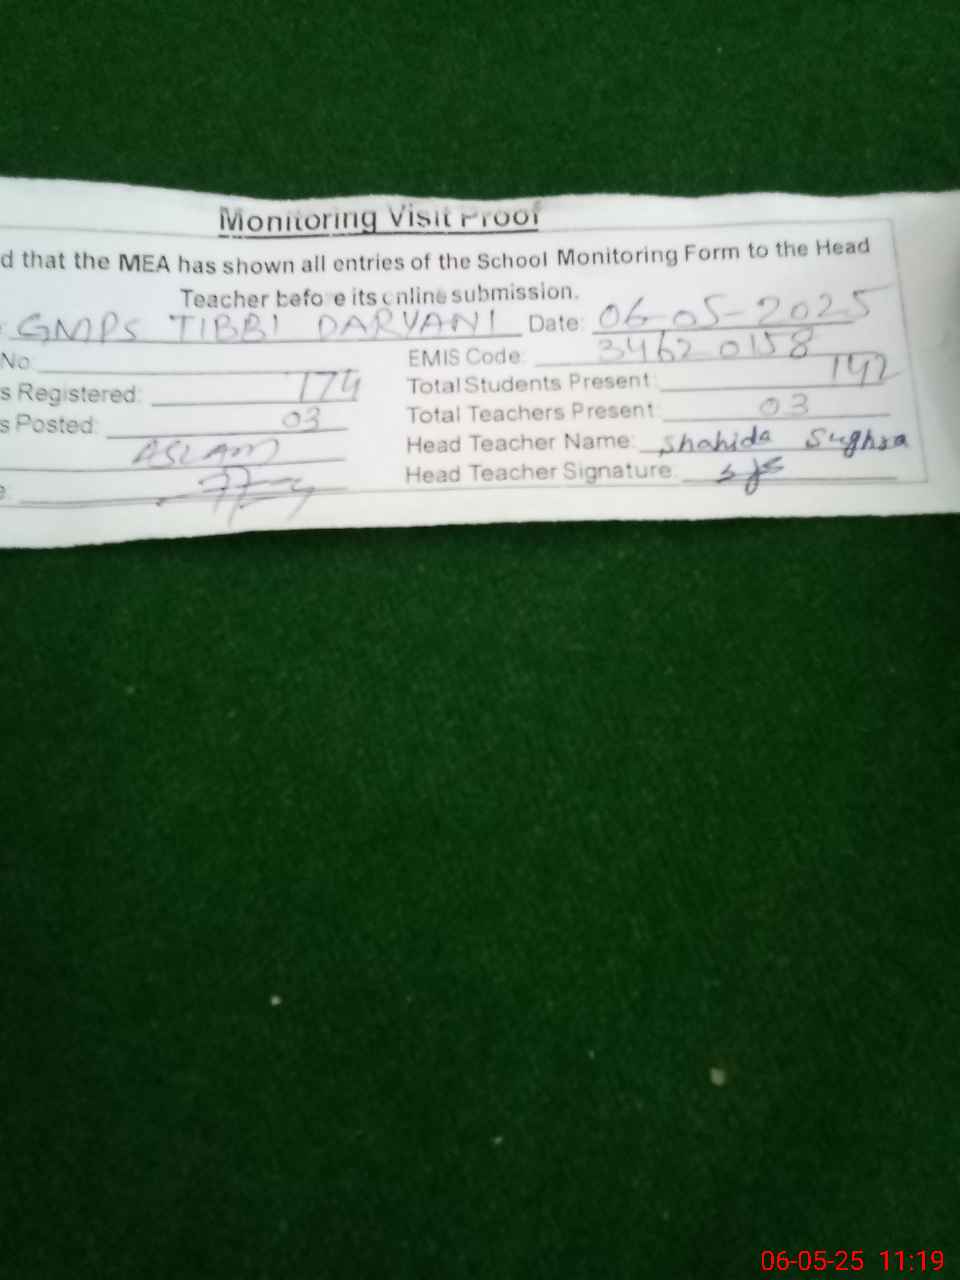 Monitoring Visit Proof
d that the MEA has shown all entries of the School Monitoring Form to the Head
Teacher before its online submission.
GMPS TIBBI DARVANI Date: 06-05-2025
No EMIS Code: 34620158
s Registered: 174 Total Students Present: 142
s Posted: 03 Total Teachers Present: 03
ASLAM Head Teacher Name: Shahida Sughra
Head Teacher Signature:
06-05-25 11:19